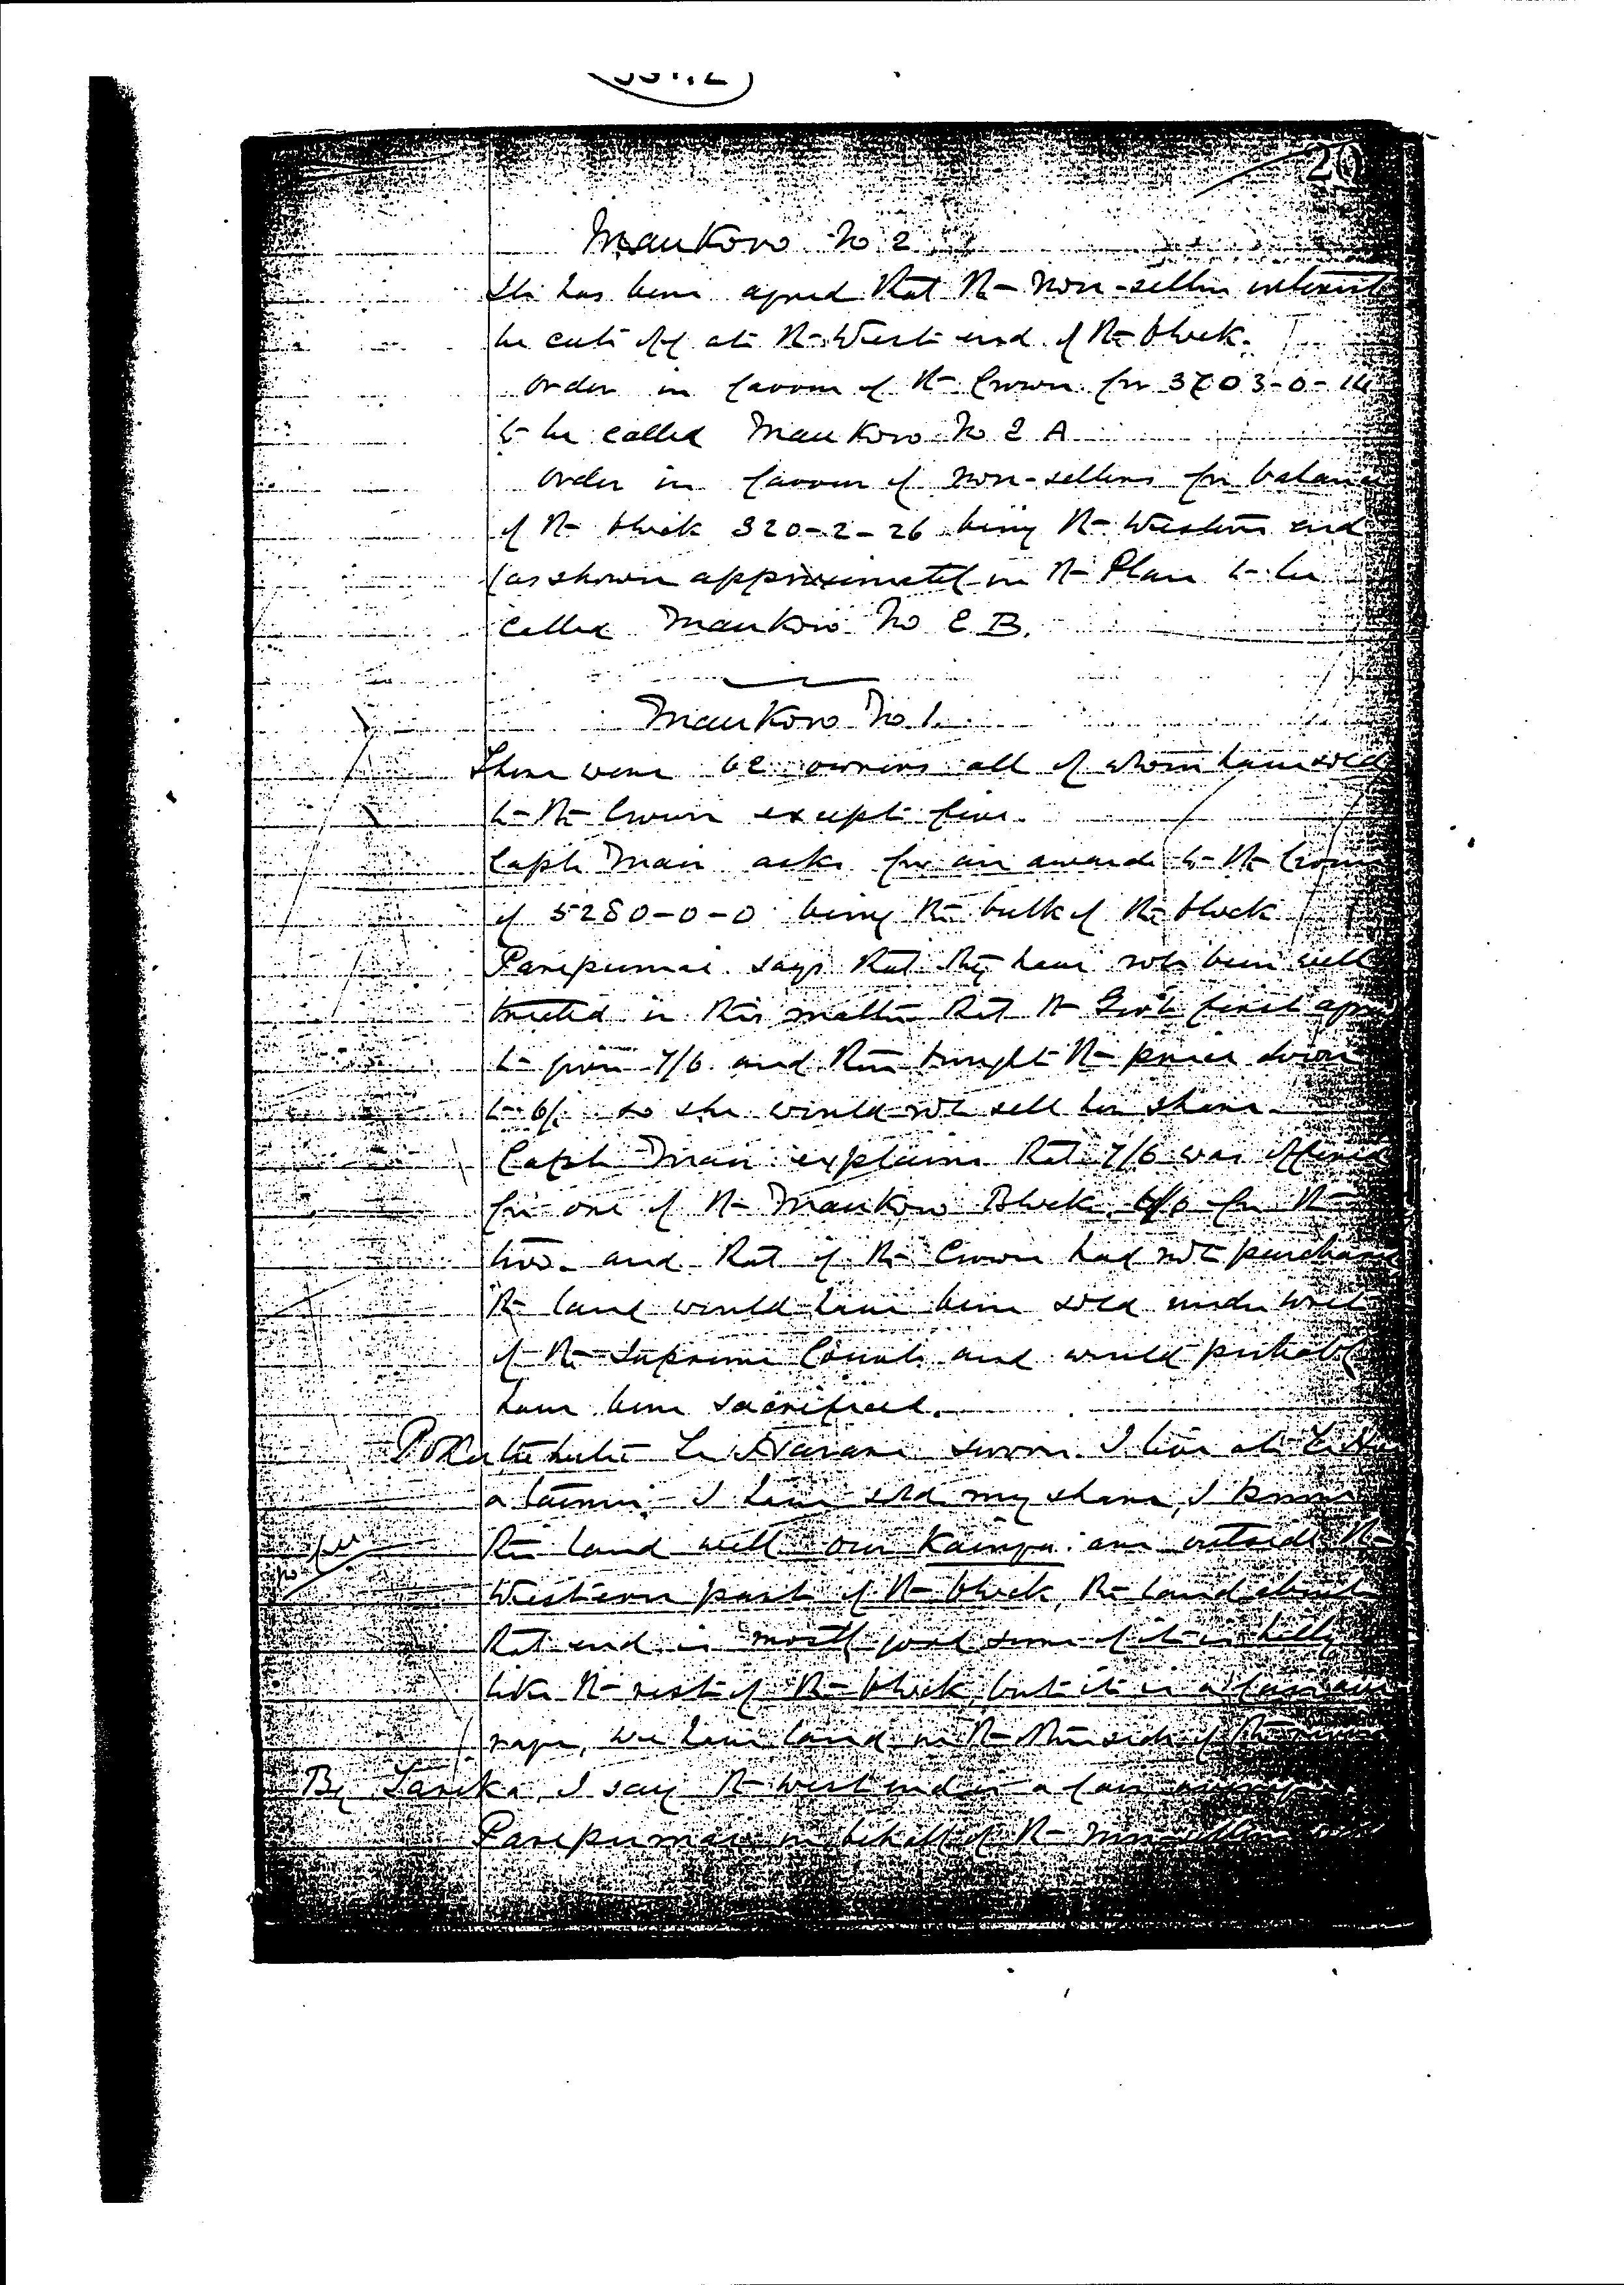 20
Maukoro No 2
It has been agreed that the non-sellers interest
be cut off at the West end of the block.
Order in favour of the Crown for 3703-0-14
to be called Maukoro No 2 A
Order in favour of non-sellers for balance
of the block 320-2-26 being the Western end
(as shown approximately on the Plan to be
called Maukoro No 2 B.
Maukoro No 1.
There were 62 owners all of whom have sold
to the Crown except five.
Capt Mair asks for an award to the Crown
of 5280-0-0 being the bulk of the block
Parepumai says that they have not been well
treated in this matter that the Govt first
to give 7/6 and then brought the price down
to 6/. so she would not sell her share.
Capt Mair explains that 7/6 was offered
for one of the Maukoro Blocks, 6/0 for the
two. and that if the Crown had not purchased
the land would have been sold under writ
of the Supreme Court and would probably
have been sacrificed.
Te sworn I live at
I have sold my share, I know
the land well our Kainga are outside the
Western part of the block, the land about
that end is mostly good some of it is hilly
like the rest of the block, but it is a fair ave
rage, we have land on the other side of the
By I say the west end is a fair average
Parepumai on behalf of the non-sellers